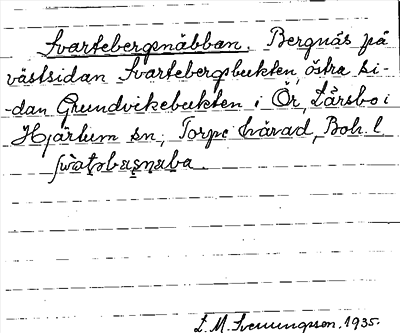 Svartebergsnäbban. Bergnäs på
västsidan Svartebergsbukten, östra si-
-dan Grundvikebukten i Ör, Lårsbo i
Hjärtum sn, Torpe härad, Boh. l
L. M. Svenungsson, 1935.